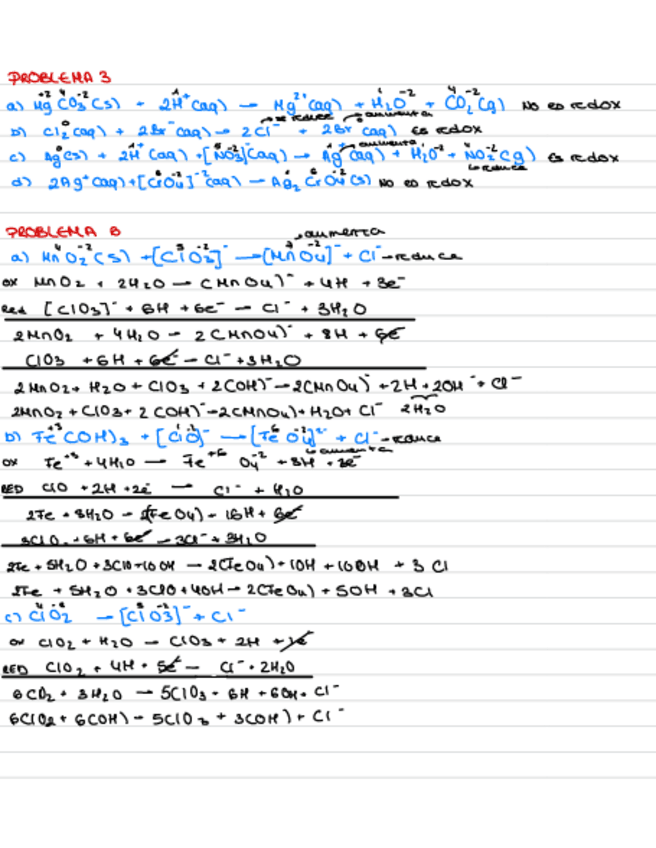 PROBLEMA 3
a) MgCO₃(s) + 2H⁺(aq) → Mg²⁺(aq) + H₂O + CO₂(g) No es redox
b) Cl₂(aq) + 2Br⁻(aq) → 2Cl⁻ + 2Br(aq) es redox
c) Ag(s) + 2H⁺(aq) + [NO₃]⁻(aq) → Ag⁺(aq) + H₂O + NO₂(g) es redox
d) 2Ag⁺(aq) + [CrO₄]⁻²(aq) → Ag₂CrO₄(s) No es redox
PROBLEMA 8
aumenta
a) MnO₂(s) + [ClO₃]⁻ → [MnO₄]⁻ + Cl⁻ → reduce
ox MnO₂ + 2H₂O → (MnO₄)⁻ + 4H + 3e⁻
Red [ClO₃]⁻ + 6H + 6e⁻ → Cl⁻ + 3H₂O
2MnO₂ + 4H₂O → 2(MnO₄)⁻ + 8H + 6e⁻
ClO₃ + 6H + 6e⁻ → Cl⁻ + 3H₂O
2MnO₂ + H₂O + ClO₃ + 2(OH)⁻ → 2(MnO₄)⁻ + 2H + 2OH⁻ + Cl⁻
2MnO₂ + ClO₃ + 2(OH)⁻ → 2(MnO₄) + H₂O + Cl⁻ 2H₂O
b) Fe(OH)₃ + [ClO]⁻ → [FeO₄]²⁻ + Cl⁻ → reduce
aumenta
ox Fe⁺³ + 4H₂O → Fe⁺⁶O₄⁻² + 8H + 3e⁻
RED ClO + 2H + 2e⁻ → Cl⁻ + H₂O
2Fe + 8H₂O → 2(FeO₄) + 16H + 6e⁻
3ClO + 6H + 6e⁻ → 3Cl⁻ + 3H₂O
2Fe + 5H₂O + 3ClO + 10OH → 2(FeO₄) + 10H + 10OH + 3Cl
2Fe + 5H₂O + 3ClO + 4OH → 2(FeO₄) + 5OH + 3Cl
c) ClO₂ → [ClO₃]⁻ + Cl⁻
ox ClO₂ + H₂O → ClO₃ + 2H + 1e⁻
RED ClO₂ + 4H + 5e⁻ → Cl⁻ + 2H₂O
6ClO₂ + 3H₂O → 5ClO₃ + 6H + 6OH + Cl⁻
6ClO₂ + 6(OH) → 5ClO₃ + 3(OH) + Cl⁻